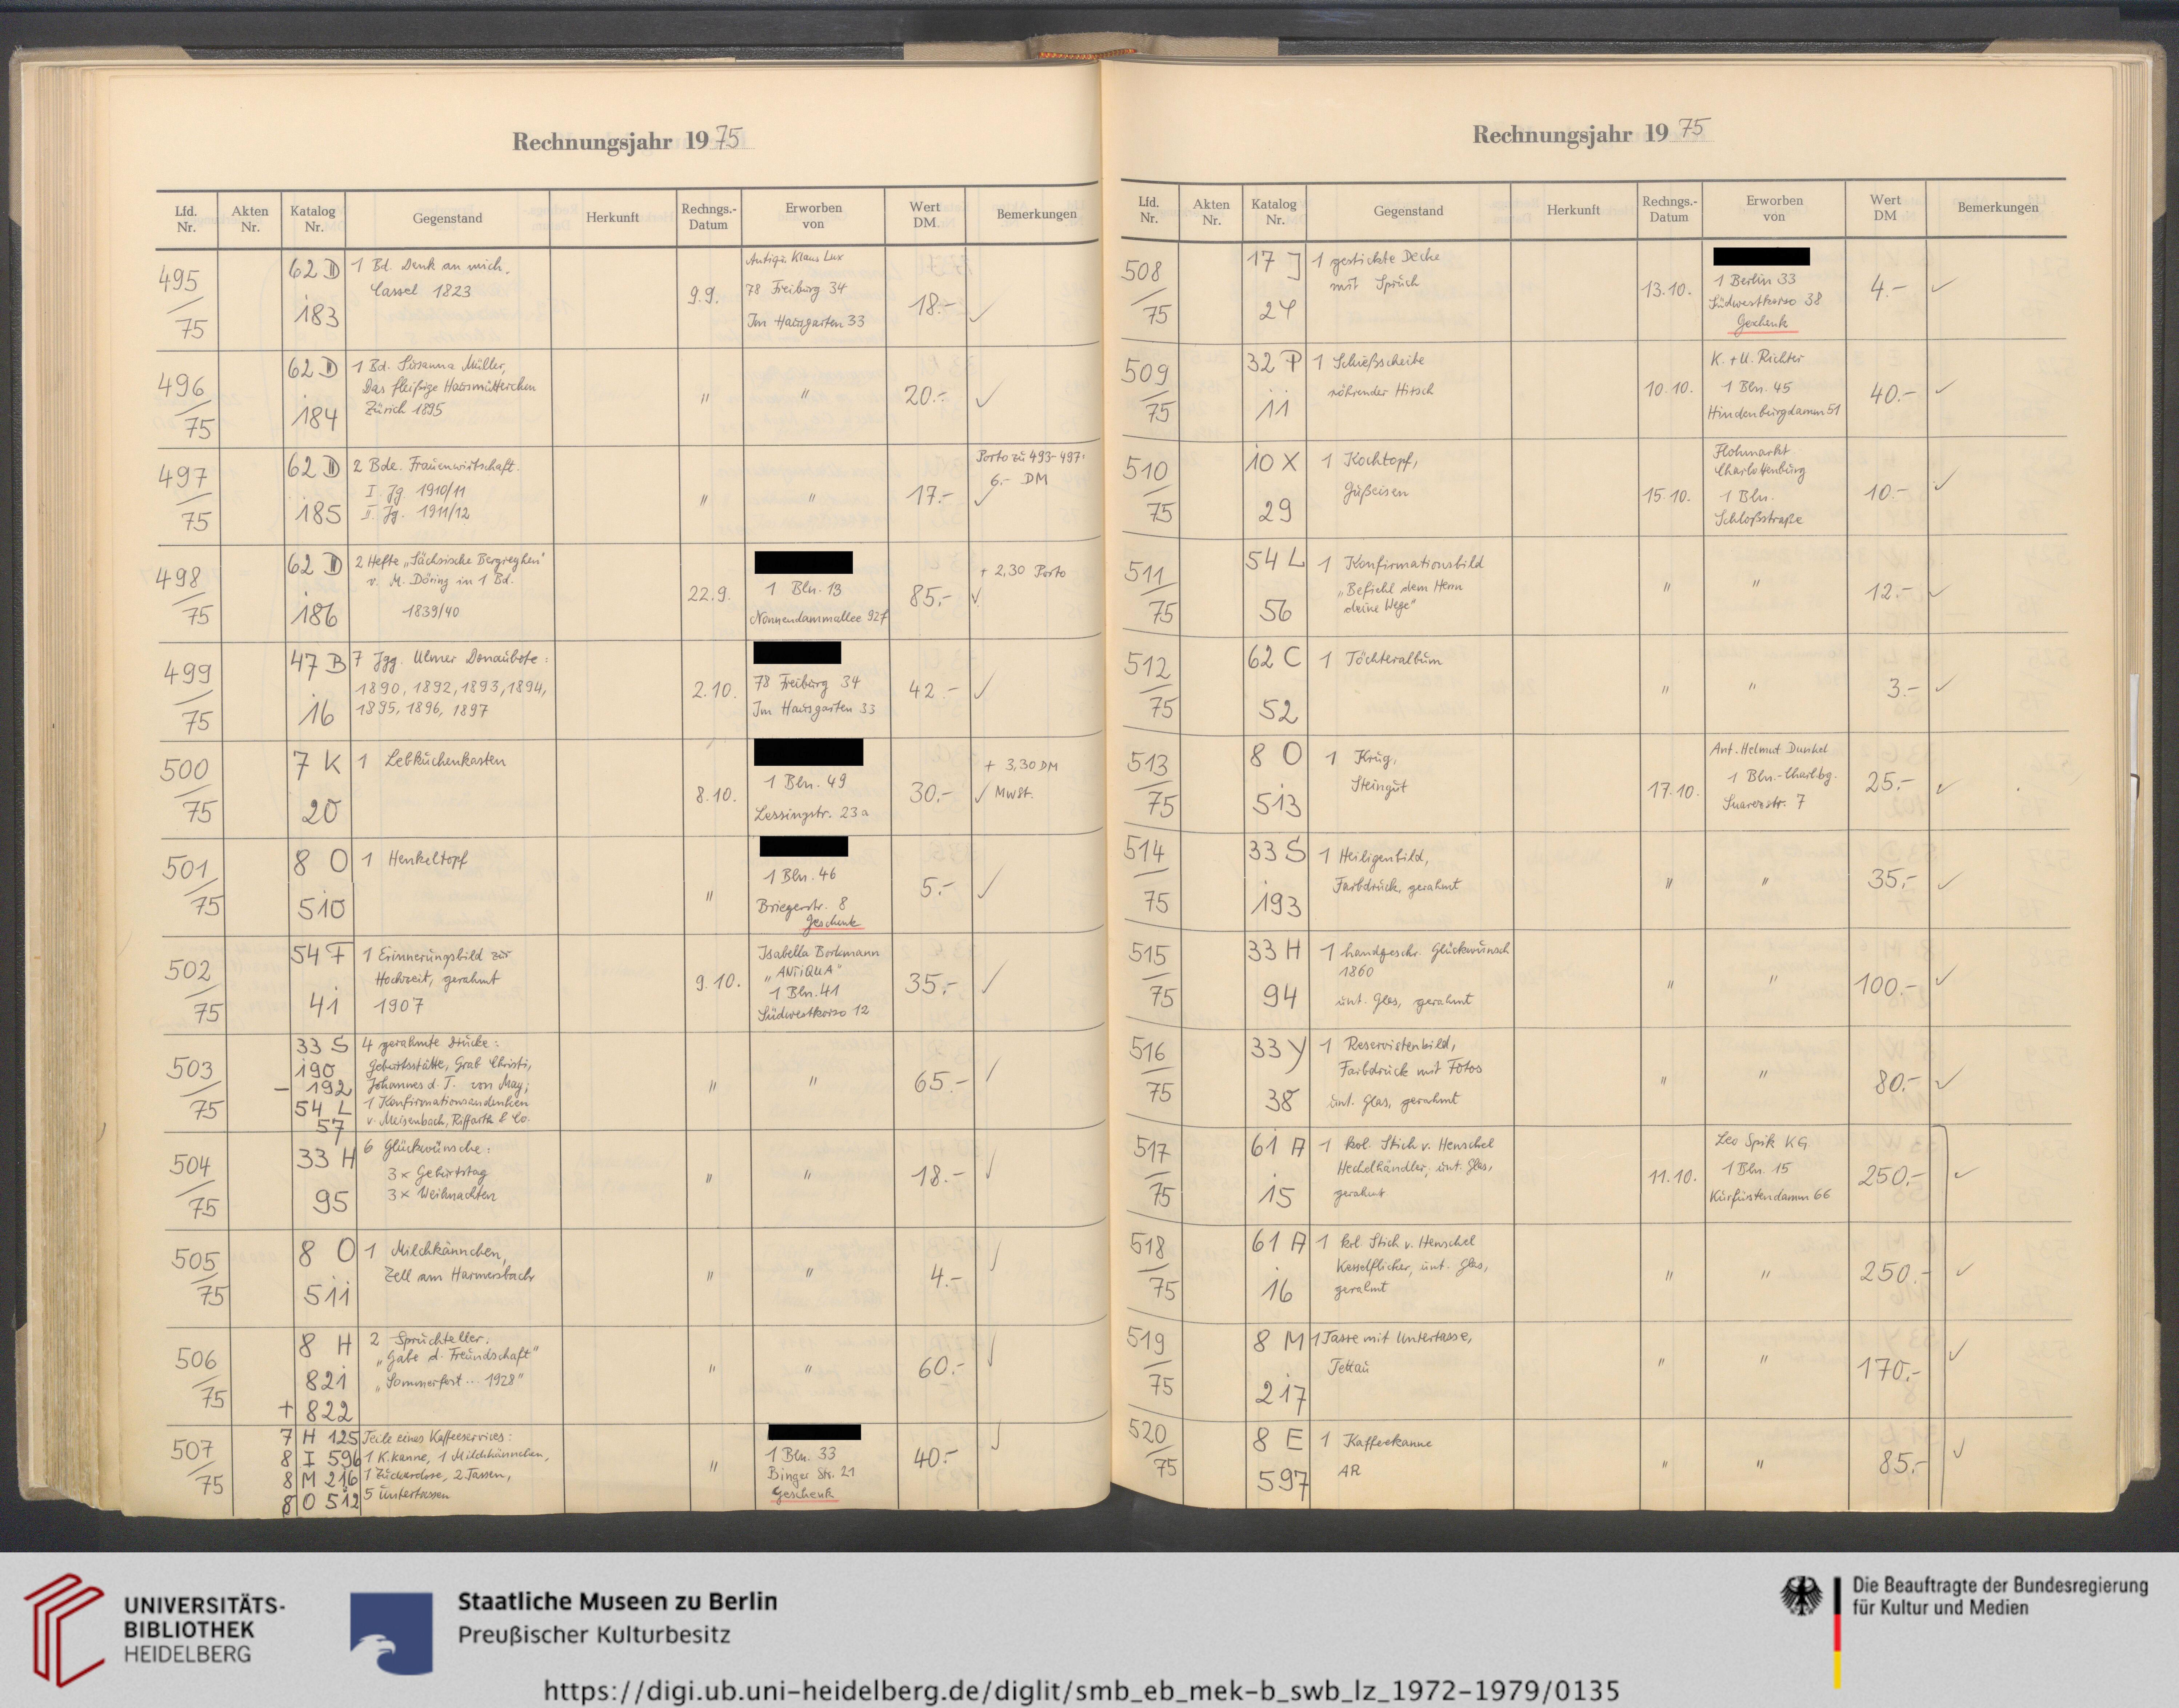 Rechnungsjahr 1975
Lfd. Nr.
Akten Nr.
Katalog Nr.
Gegenstand
Herkunft
Rechngs.-Datum
Erworben von
Wert DM
Bemerkungen
495/75
62 D
183
1 Bd. Denk an mich.
Cassel 1823
9.9.
Antiqu. Klaus Lux
78 Freiburg 34
Im Hausgarten 33
18.- ✓
496/75
62 D
184
1 Bd. Susanna Müller,
Das fleißige Hausmütterchen
Zürich 1895
"
"
20.- ✓
497/75
62 D
185
2 Bde. Frauenwirtschaft.
I. Jg 1910/11
II. Jg. 1911/12
"
"
17.-
Porto zu 493-497:
6.- DM
✓
498/75
62 D
186
2 Hefte „Sächsische Bergreyhen"
v. M. Döring in 1 Bd.
1839/40
22.9.
1 Bln. 13
Nonnendammallee 92f
85,-
+ 2,30 Porto
✓
499/75
47 B
16
7 Jgg. Ulmer Donaubote:
1890, 1892, 1893, 1894,
1895, 1896, 1897
2.10.
78 Freiburg 34
Im Hausgarten 33
42.- ✓
500/75
7 K
20
1 Lebkuchenkasten
8.10.
1 Bln. 49
Lessingstr. 23a
30,-
+ 3,30 DM
✓ MwSt.
501/75
8 O
510
1 Henkeltopf
"
1 Bln. 46
Briegerstr. 8
Geschenk
5,- ✓
502/75
54 F
41
1 Erinnerungsbild zur
Hochzeit, gerahmt
1907
9.10.
Isabella Borkmann
„ANTIQUA"
1 Bln. 41
Südwestkorso 12
35,- ✓
503/75
33 S
190
- 192
54 L
57
4 gerahmte Drucke:
Geburtsstätte, Grab Christi,
Johannes d. T. von May;
1 Konfirmationsandenken
v. Meisenbach, Riffarth & Co.
"
"
65.- ✓
504/75
33 H
95
6 Glückwünsche:
3x Geburtstag
3x Weihnachten
"
"
18.- ✓
505/75
8 O
511
1 Milchkännchen,
Zell am Harmersbach
"
"
4.- ✓
506/75
8 H
821
+ 822
2 Spruchteller:
„Gabe d. Freundschaft"
„Sommerfest... 1928"
"
"
60.- ✓
507/75
7 H 125
8 I 596
8 M 216
8 O 512
Teile eines Kaffeeservices:
1 K.kanne, 1 Milchkännchen,
1 Zuckerdose, 2 Tassen,
5 Untertassen
"
1 Bln. 33
Binger Str. 21
Geschenk
40.- ✓
Rechnungsjahr 1975
Lfd. Nr.
Akten Nr.
Katalog Nr.
Gegenstand
Herkunft
Rechngs.-Datum
Erworben von
Wert DM
Bemerkungen
508/75
17 J
24
1 gestickte Decke
mit Spruch
13.10.
1 Berlin 33
Südwestkorso 38
Geschenk
4.- ✓
509/75
32 P
11
1 Schießscheibe
röhrender Hirsch
10.10.
K. + U. Richter
1 Bln. 45
Hindenburgdamm 51
40.- ✓
510/75
10 X
29
1 Kochtopf,
Gußeisen
15.10.
Flohmarkt
Charlottenburg
1 Bln.
Schloßstraße
10.- ✓
511/75
54 L
56
1 Konfirmationsbild
„Befiehl dem Herrn
deine Wege"
"
"
12.- ✓
512/75
62 C
52
1 Töchteralbum
"
"
3.- ✓
513/75
8 O
513
1 Krug,
Steingut
17.10.
Ant. Helmut Dunkel
1 Bln.-Charlbg.
Suarezstr. 7
25.- ✓
514/75
33 S
193
1 Heiligenbild,
Farbdruck, gerahmt
"
"
35,- ✓
515/75
33 H
94
1 handgeschr. Glückwunsch
1860
unt. Glas, gerahmt
"
"
100.- ✓
516/75
33 Y
38
1 Reservistenbild,
Farbdruck mit Fotos
unt. Glas, gerahmt
"
"
80.- ✓
517/75
61 A
15
1 kol. Stich v. Henschel
Hechelhändler, unt. Glas,
gerahmt
11.10.
Leo Spik KG
1 Bln. 15
Kurfürstendamm 66
250.- ✓
518/75
61 A
16
1 kol. Stich v. Henschel
Kesselflicker, unt. Glas,
gerahmt
"
"
250.- ✓
519/75
8 M
217
1 Tasse mit Untertasse,
Tettau
"
"
170.- ✓
520/75
8 E
597
1 Kaffeekanne
AR
"
"
85.- ✓
UNIVERSITÄTS-
BIBLIOTHEK
HEIDELBERG
Staatliche Museen zu Berlin
Preußischer Kulturbesitz
Die Beauftragte der Bundesregierung
für Kultur und Medien
https://digi.ub.uni-heidelberg.de/diglit/smb_eb_mek-b_swb_lz_1972-1979/0135